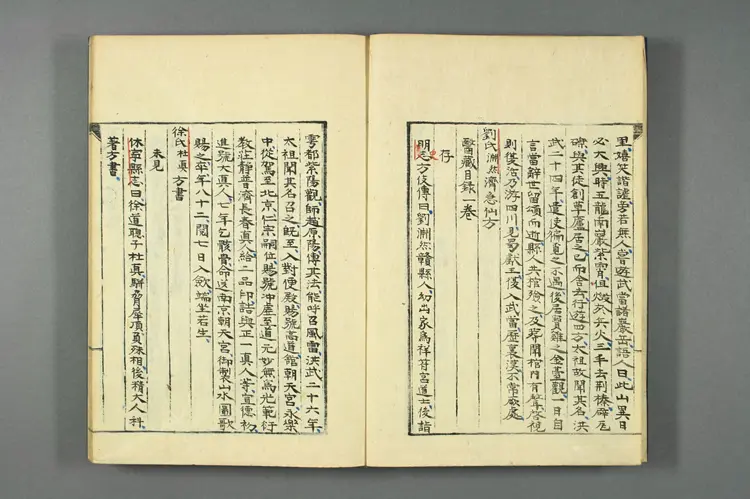 里嬉笑諧謔旁若無人嘗遊武當諸巖壑語人曰此山異日
必大興時五龍南巖紫霄俱燬於兵火三丰去荊榛辟瓦
礫與其徒創草廬居之已而舍去行遊四方太祖故聞其名洪
武二十四年遣使徧覓之不遇後居寶雞之金臺觀一日自
言當辭世留頌而逝縣人共棺殮之及葬聞棺內有聲啓視
則復活乃游四川見蜀獻王復入武當歷襄漢不常厥處
劉氏淵然濟急仙方
醫藏目錄一卷
存
明史方伎傳曰劉淵然贛縣人幼出家爲祥符宮道士後詣
雩都紫陽觀師趙原陽傳其法能呼召風雷洪武二十六年
太祖聞其名召之既至入對便殿賜號高道館朝天宮永樂
中從駕至北京仁宗嗣位賜號沖虛至道元妙無爲光範衍
教莊靜普濟長春真人給二品印誥與正一真人等宣德初
進號大真人七年乞骸骨命送南京朝天宮御製山水圖歌
賜之卒年八十二閱七日入歛端坐若生
徐氏杜真方書
未見
休寧縣志曰徐道聰子杜真駢脅犀頂負殊相後精大人科
著方書